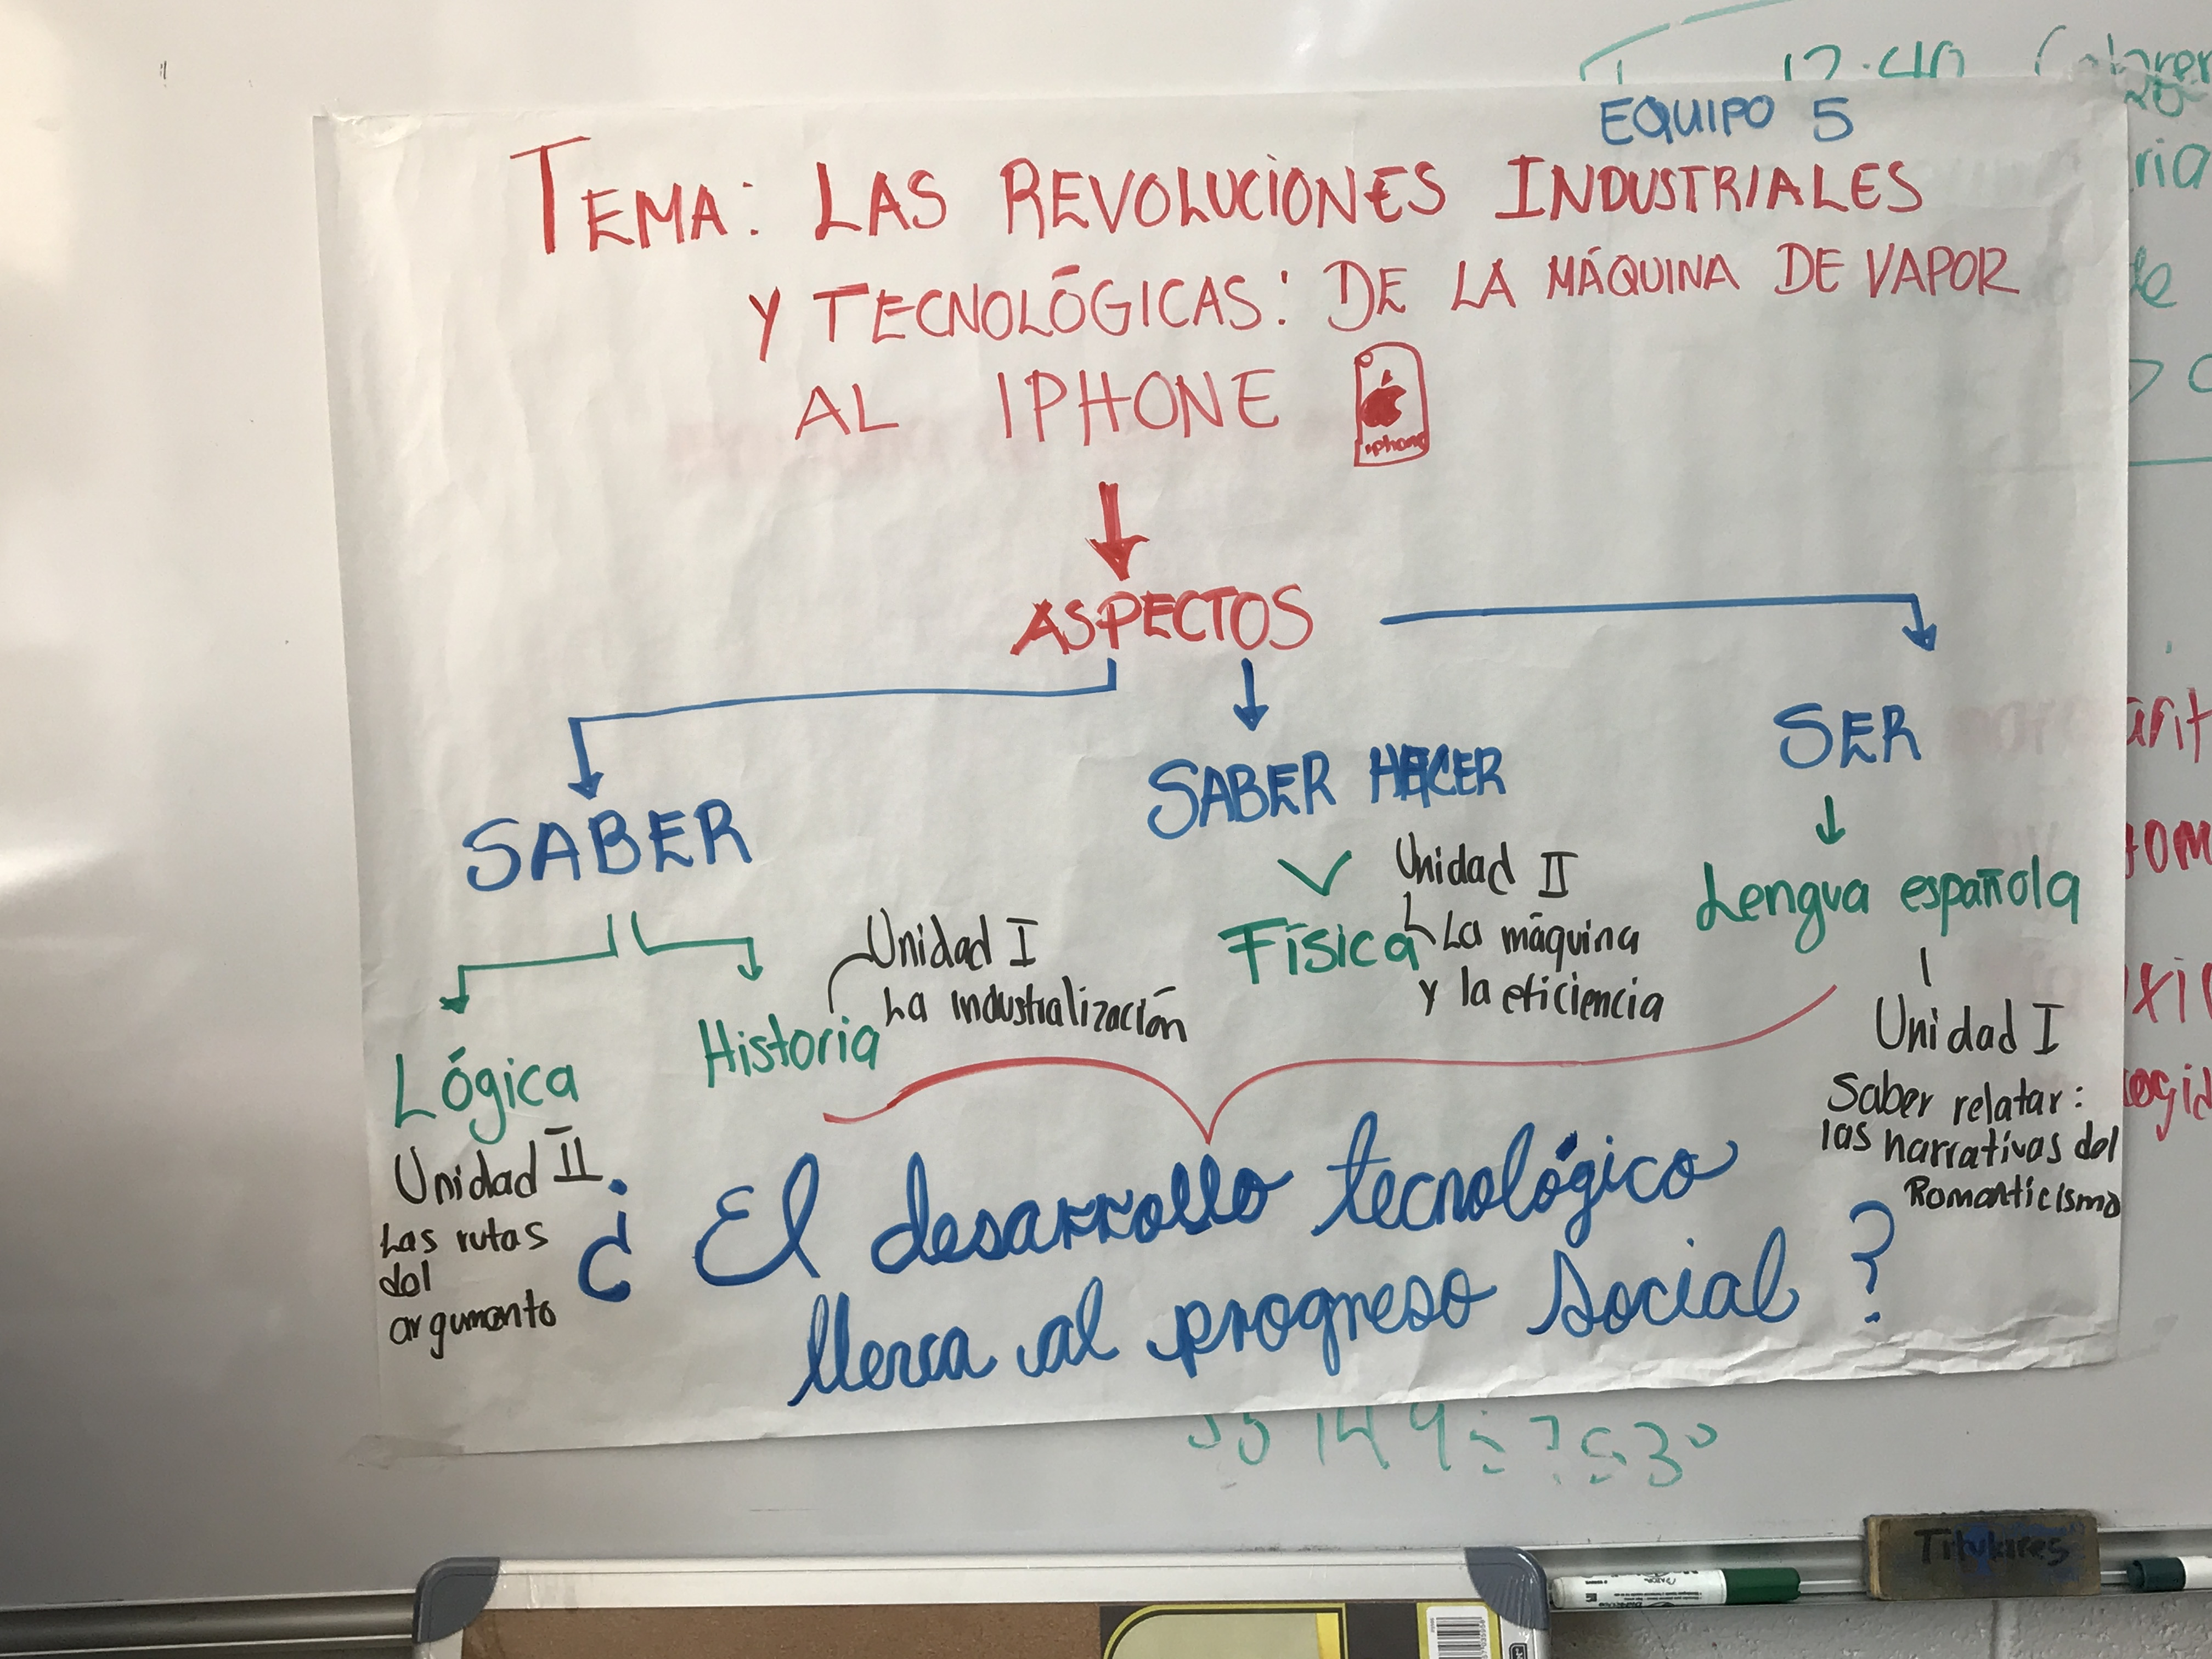 12:40
EQUIPO 5
TEMA: LAS REVOLUCIONES INDUSTRIALES
Y TECNOLÓGICAS: DE LA MÁQUINA DE VAPOR
AL IPHONE
iphone
ASPECTOS
SABER
SABER HACER
SER
Lógica
Unidad II
Las rutas
del
argumento
Historia
Unidad I
La industrialización
Física
Unidad II
La máquina
y la eficiencia
Lengua española
Unidad I
Saber relatar:
las narrativas del
Romanticismo
¿ El desarrollo tecnológico
lleva al progreso social ?
Titulares